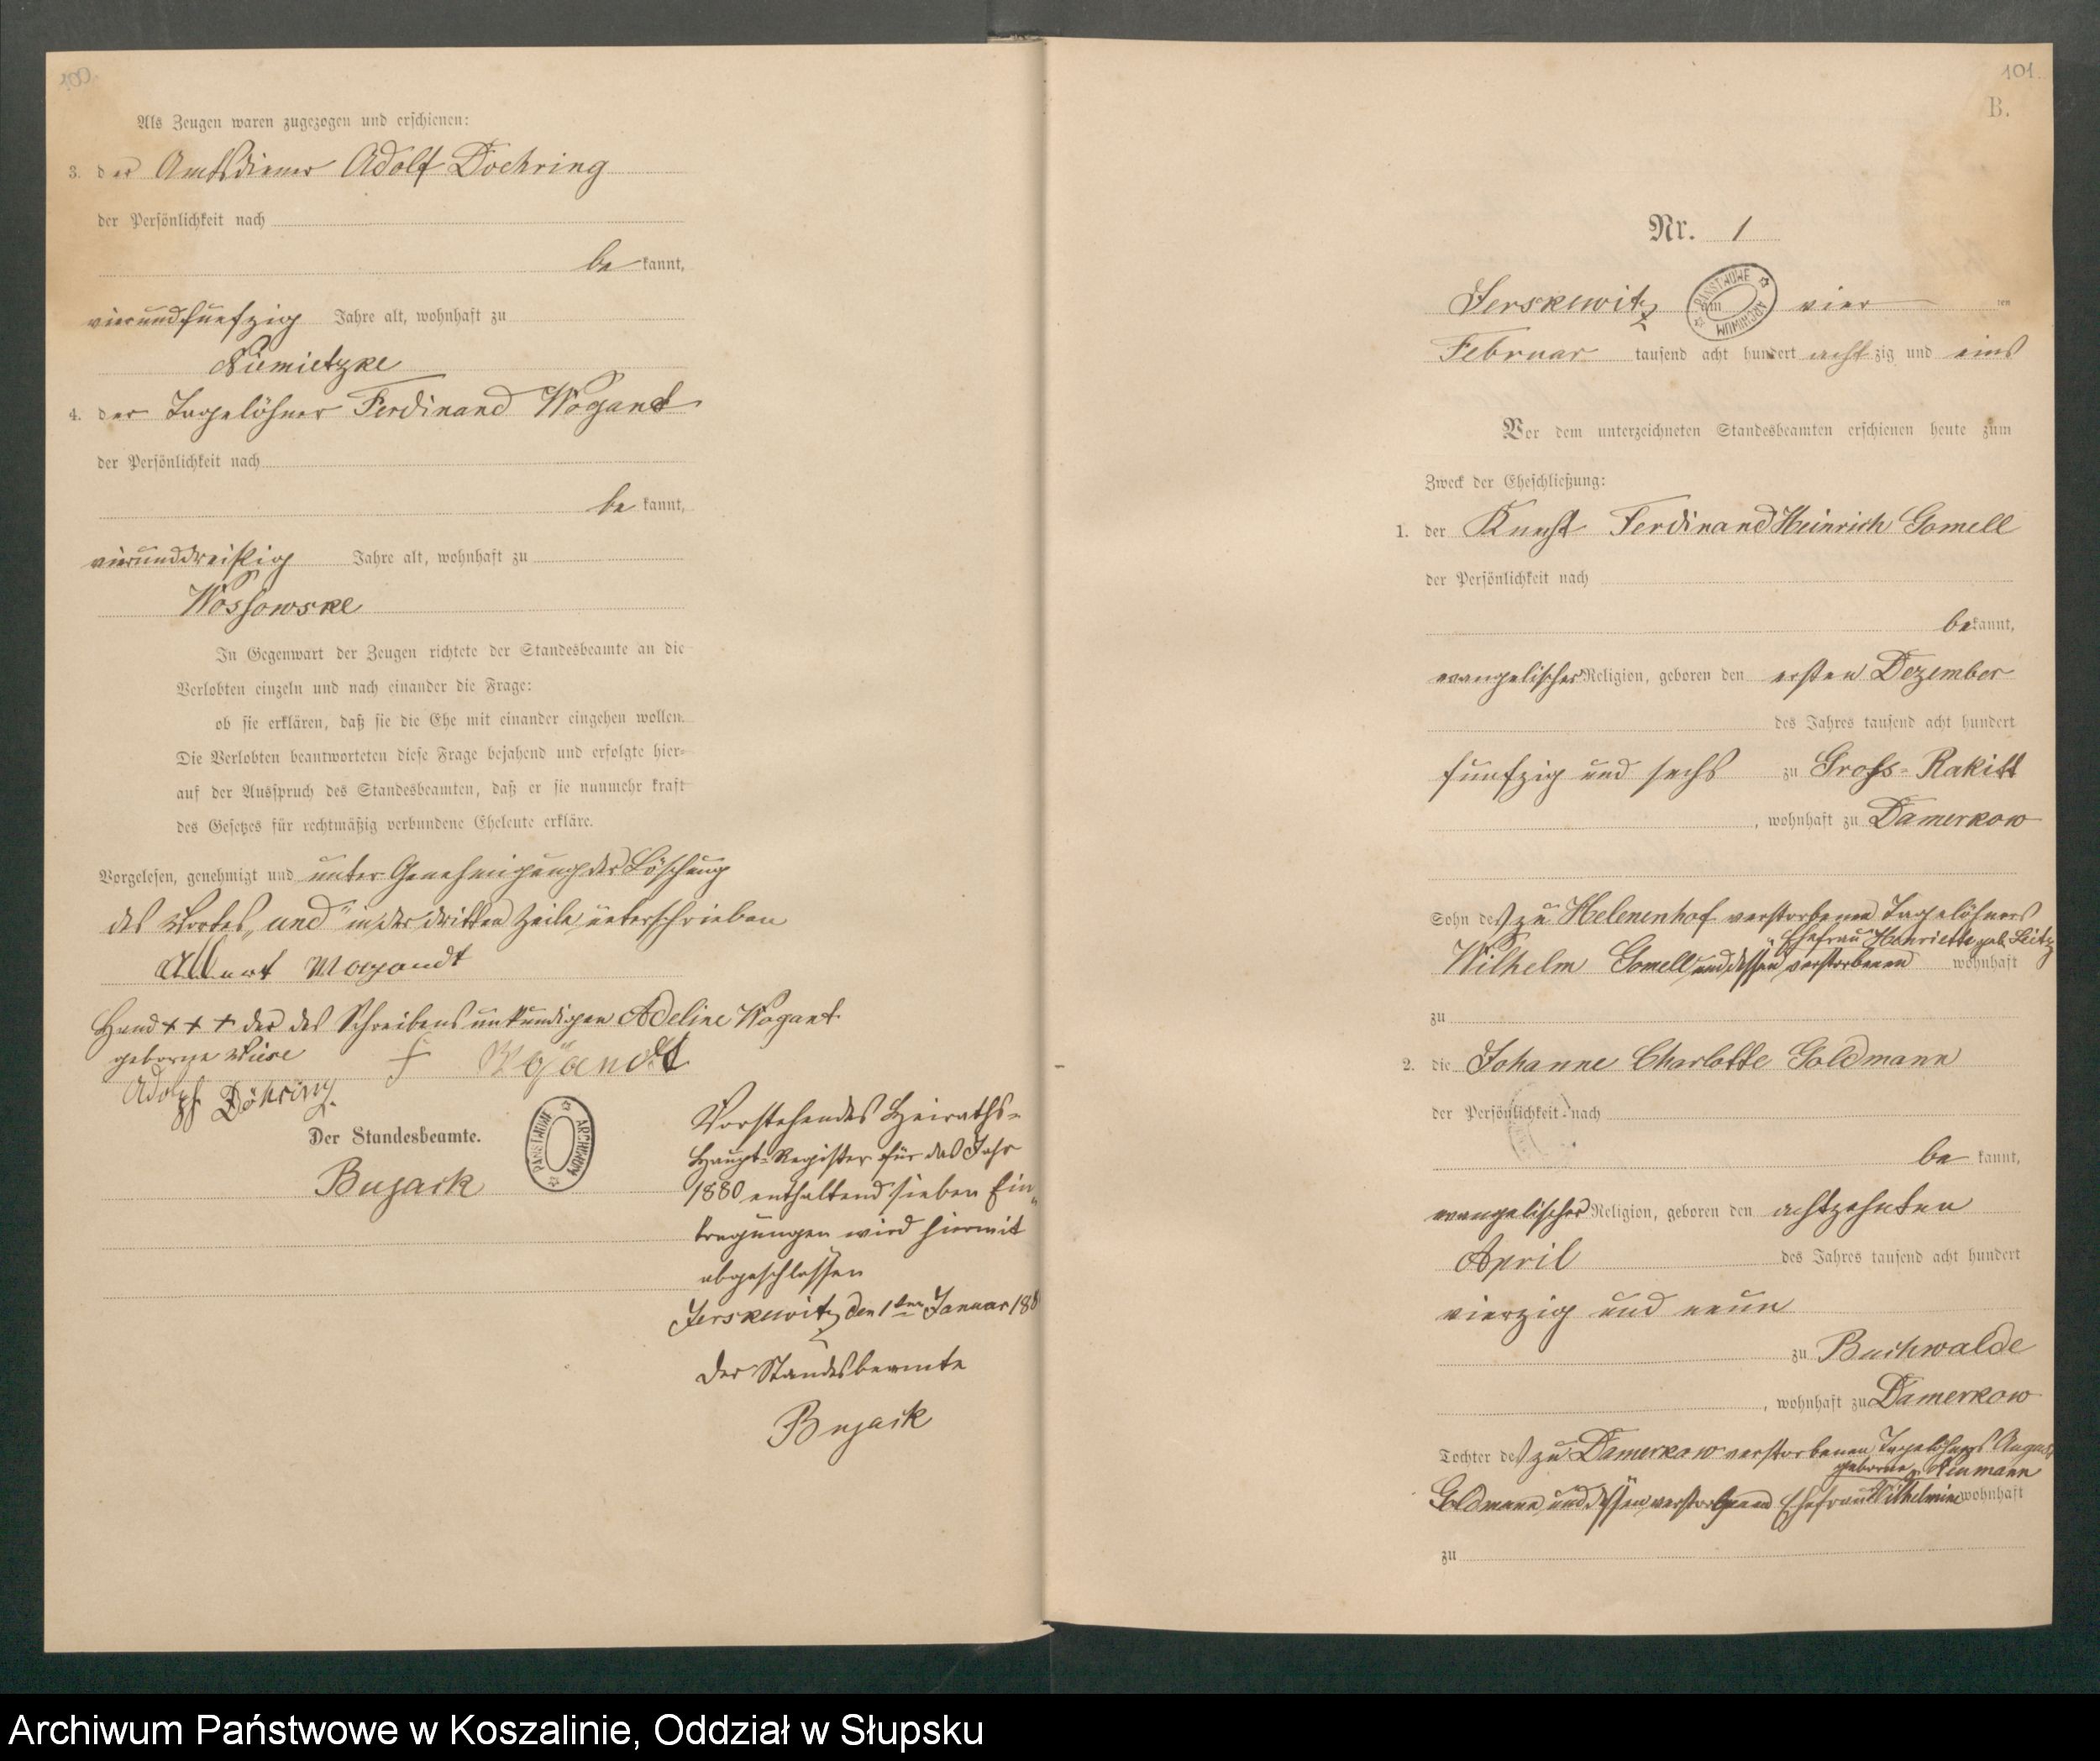 100
Als Zeugen waren zugezogen und erschienen:
3. der Amtsdiener Adolf Doehring
der Persönlichkeit nach
be kannt,
vierundfuefzig Jahre alt, wohnhaft zu
Niemietzke
4. der Tagelöhner Ferdinand Wogant
der Persönlichkeit nach
be kannt,
vierunddreißig Jahre alt, wohnhaft zu
Wossowske
In Gegenwart der Zeugen richtete der Standesbeamte an die
Verlobten einzeln und nach einander die Frage:
ob sie erklären, daß sie die Ehe mit einander eingehen wollen.
Die Verlobten beantworteten diese Frage bejahend und erfolgte hier-
auf der Ausspruch des Standesbeamten, daß er sie nunmehr kraft
des Gesetzes für rechtmäßig verbundene Eheleute erkläre.
Vorgelesen, genehmigt und unter Genehmigung der Löschung
des Wortes „und" in der dritten Zeile unterschrieben
Wogandt
Hand + + + der des Schreibens unkundigen Adeline Wogant
geborne Wiese f Wogandt
Adolf Döhring.
Der Standesbeamte.
Bujack
PAŃSTWOWE ARCHIWUM
Vorstehendes Heiraths-
Haupt-Register für das Jahr
1880 enthaltend sieben Ein-
tragungen wird hiermit
abgeschlossen
Jerskewitz den 1ten Januar 188
Der Standesbeamte
Bujack
101
B.
Nr. 1
Jerskewitz am vier ten
PAŃSTWOWE ARCHIWUM
Februar tausend acht hundert acht zig und eins
Vor dem unterzeichneten Standesbeamten erschienen heute zum
Zweck der Eheschließung:
1. der Knecht Ferdinand Heinrich Gomell
der Persönlichkeit nach
be kannt,
evangelischer Religion, geboren den ersten Dezember
des Jahres tausend acht hundert
funfzig und sechs zu Gross-Rakitt
, wohnhaft zu Damerkow
Sohn des zu Helenenhof verstorbenen Tagelöhners
Ehefrau Henriette geb.
Wilhelm Gomell und dessen verstorbenen wohnhaft
zu
2. die Johanne Charlotte Goldmann
der Persönlichkeit nach
be kannt,
evangelischer Religion, geboren den achtzehnten
April des Jahres tausend acht hundert
vierzig und neun
zu Buchwalde
, wohnhaft zu Damerkow
Tochter des zu Damerkow verstorbenen Tagelöhners August
geborne Neumann
Goldmann und dessen verstorbenen Ehefrau Wilhelmine wohnhaft
zu
Archiwum Państwowe w Koszalinie, Oddział w Słupsku